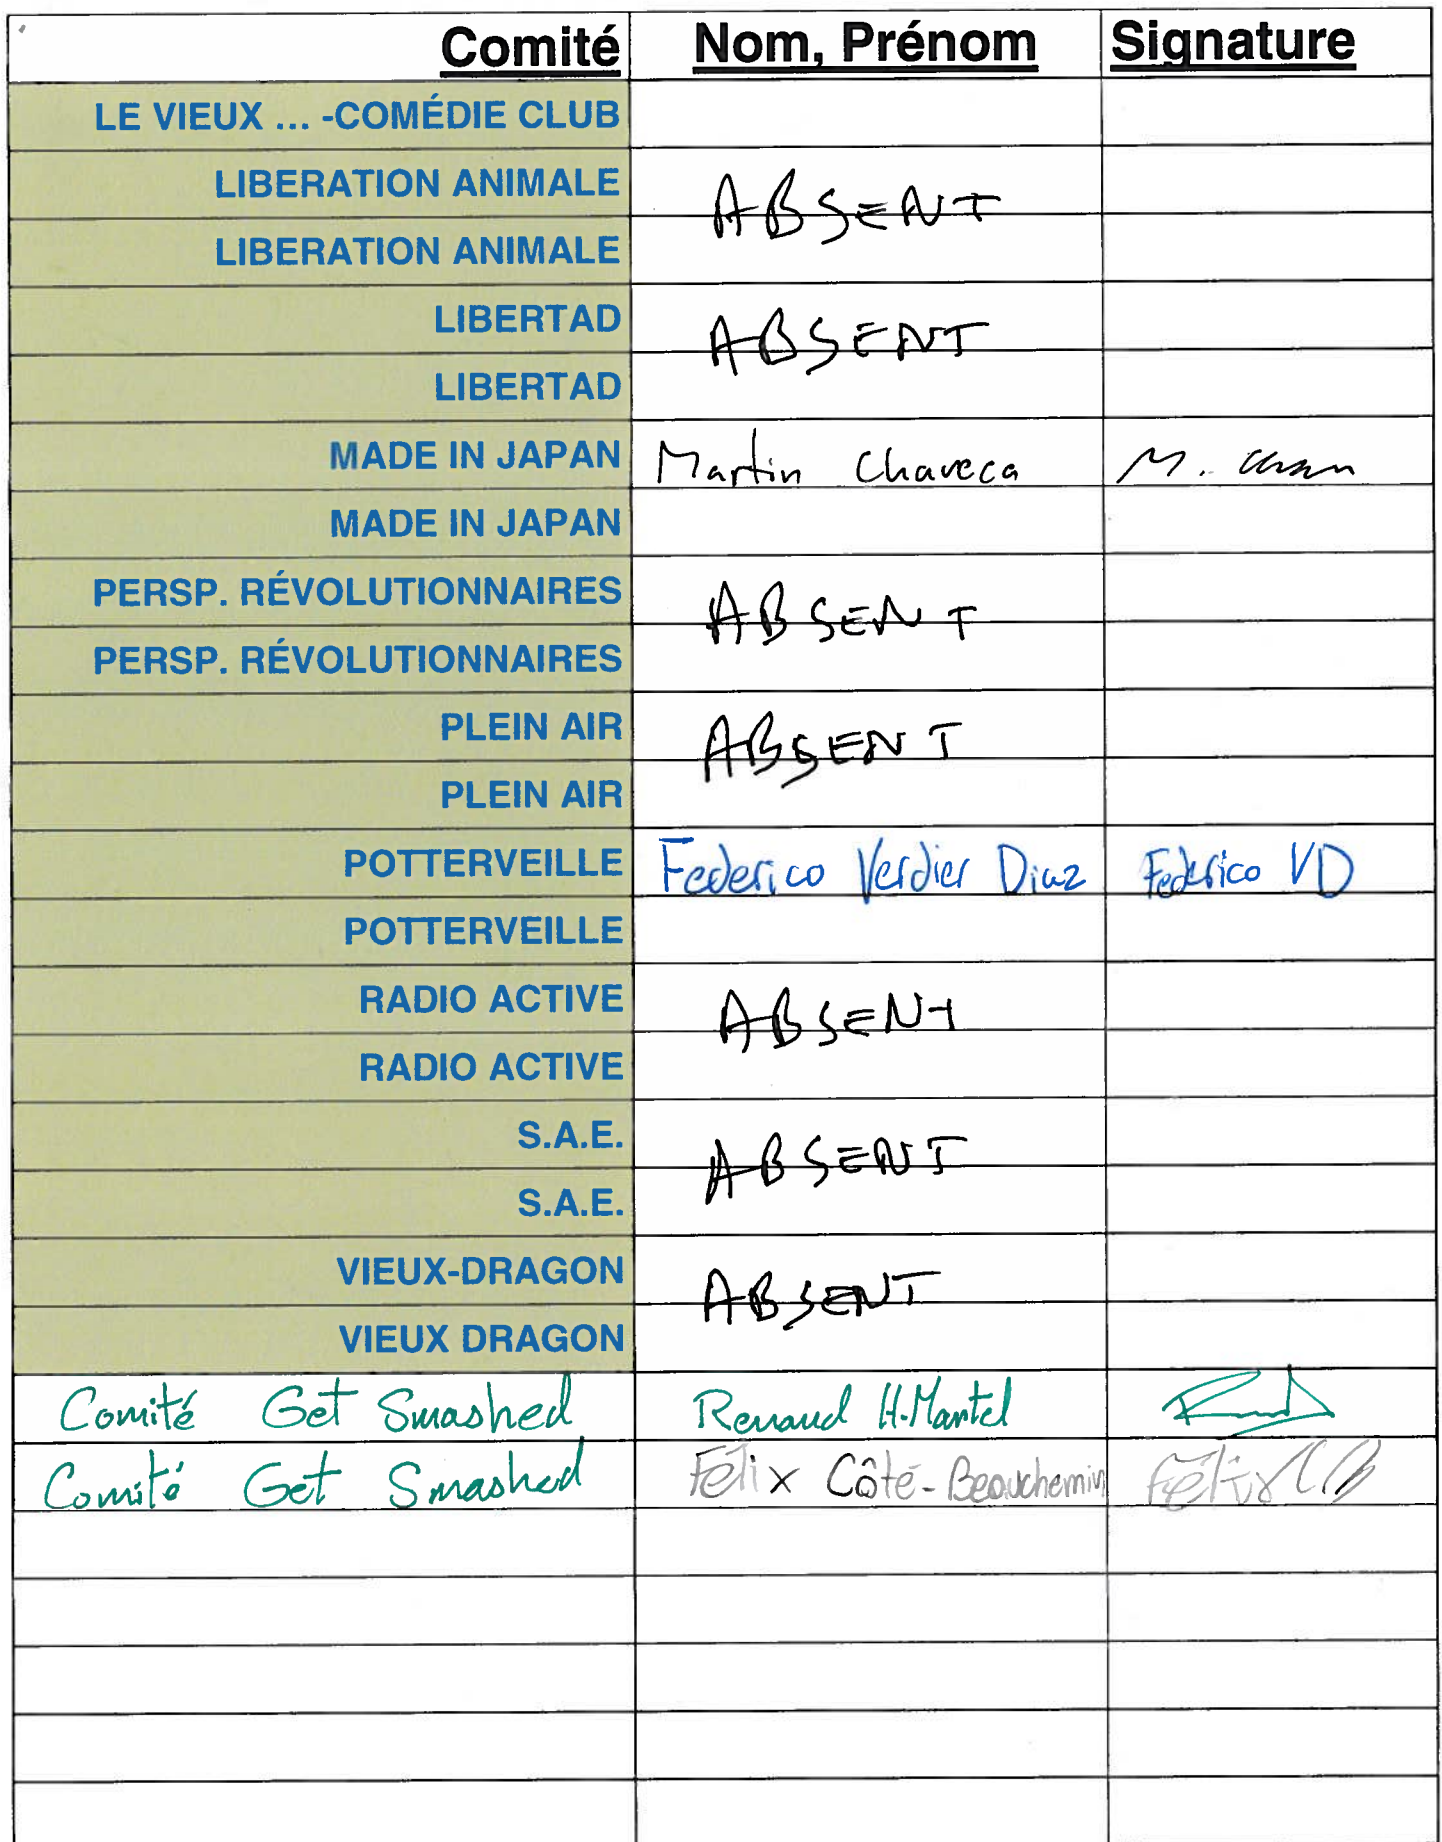 Comité Nom, Prénom Signature
LE VIEUX ... -COMÉDIE CLUB
LIBERATION ANIMALE
ABSENT
LIBERATION ANIMALE
LIBERTAD
ABSENT
LIBERTAD
MADE IN JAPAN Martin Chaveca M.
MADE IN JAPAN
PERSP. RÉVOLUTIONNAIRES
ABSENT
PERSP. RÉVOLUTIONNAIRES
PLEIN AIR
ABSENT
PLEIN AIR
POTTERVEILLE Federico Verdier Diaz Federico VD
POTTERVEILLE
RADIO ACTIVE
ABSENT
RADIO ACTIVE
S.A.E.
ABSENT
S.A.E.
VIEUX-DRAGON
ABSENT
VIEUX DRAGON
Comité Get Smashed Renaud H.Mantel
Comité Get Smashed Félix Côté-Beauchemin Félix CB